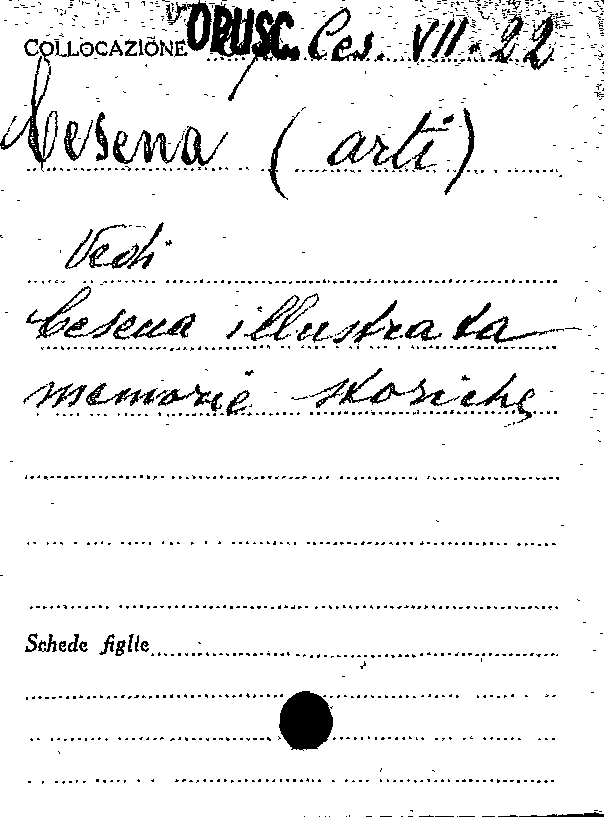 COLLOCAZIONE OPUSC. Ces. VII. 22
Cesena (arti)
Vedi
Cesena illustrata
memorie storiche
Schede figlie